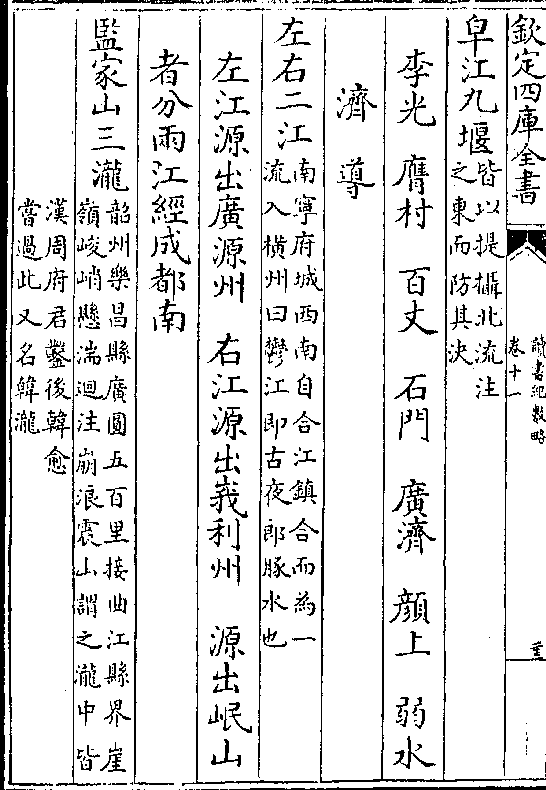 欽定四庫全書
讀書紀數略
卷十一
皁江九堰皆以提攝北流注
之東而防其決
李光　膺村　百丈　石門　廣濟　顔上　弱水
濟　導
左右二江南寧府城西南自合江鎮合而為一
流入橫州曰鬱江即古夜郎豚水也
左江源出廣源州　右江源出峩利州　源出岷山
者分兩江經成都南
監家山三瀧韶州樂昌縣廣圓五百里接曲江縣界崖
嶺峻峭懸湍迴注崩浪震山謂之瀧中皆
漢周府君鑿後韓愈
嘗過此又名韓瀧